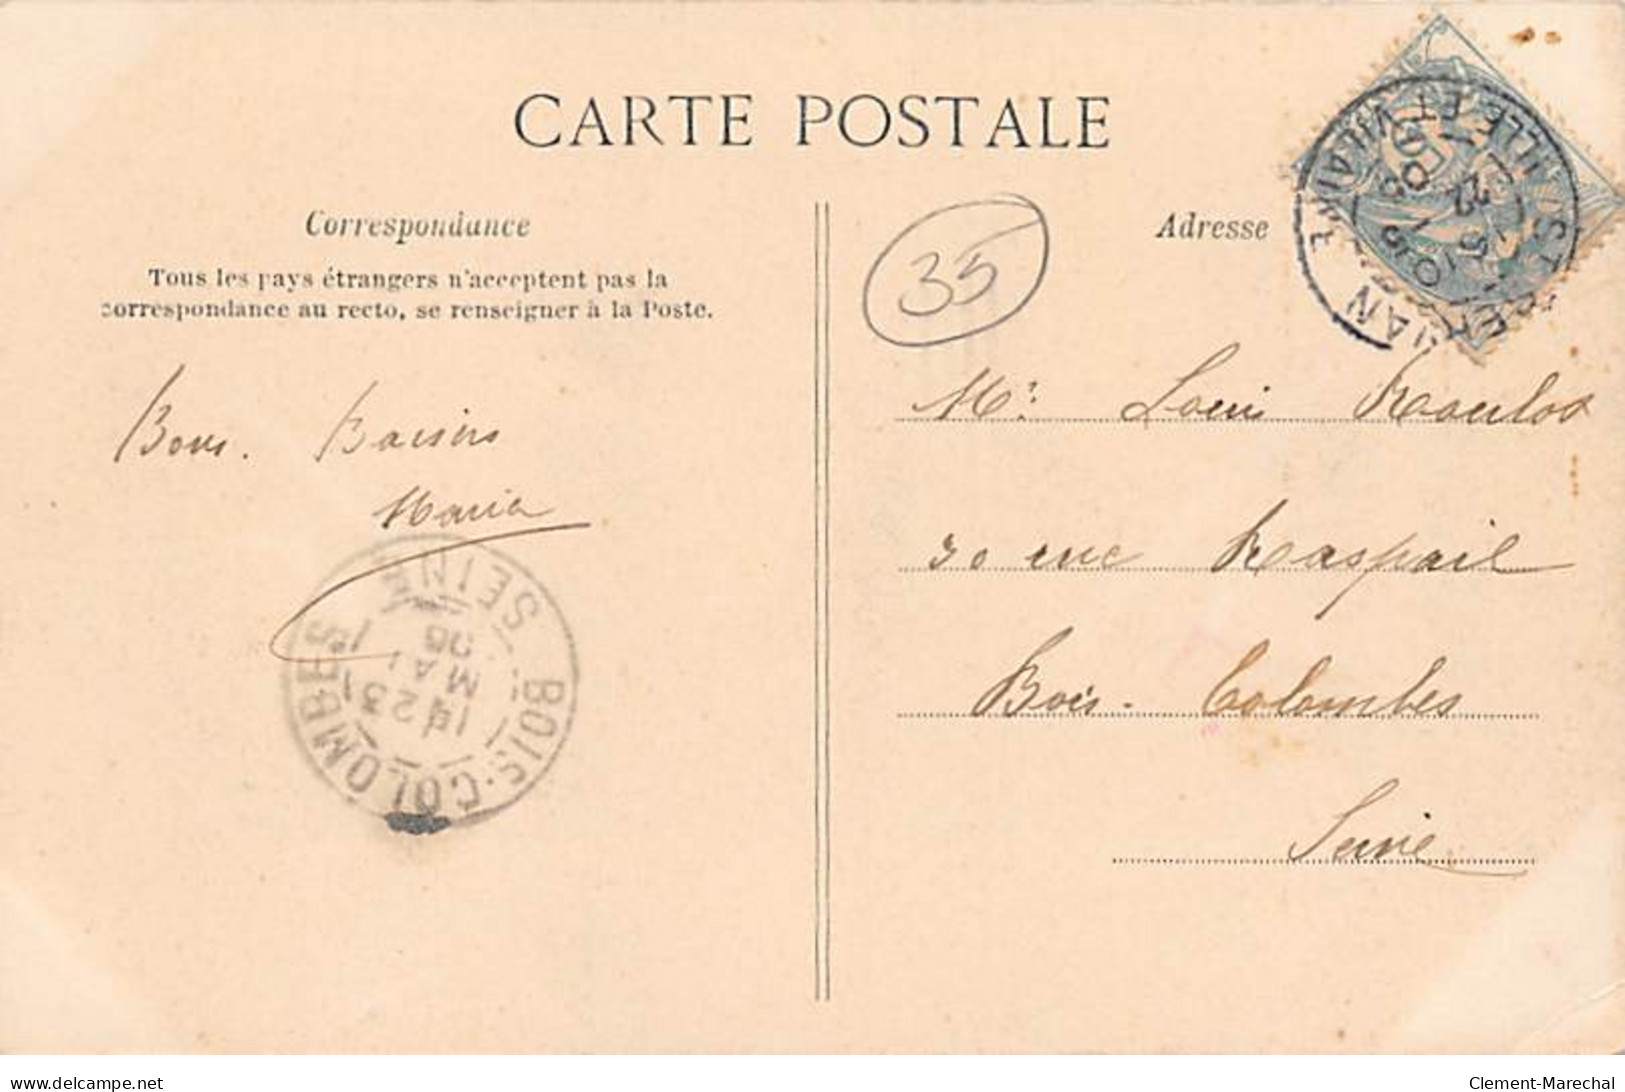 CARTE POSTALE
Correspondance
Tous les pays étrangers n'acceptent pas la
correspondance au recto, se renseigner à la Poste.
35
Adresse
Bons. Baisers
Maria
Mr. Louis
30 rue Raspail
Bois-Colombes
Seine
BOIS-COLOMBES
SEINE
23
MAI
ILLE ET VILAINE
Clement-Marechal
delcampe.net